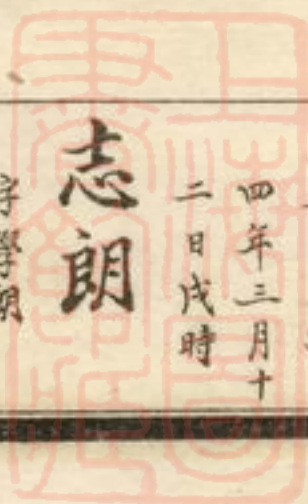 四年三月十
二日戌時
志朗
字學朗